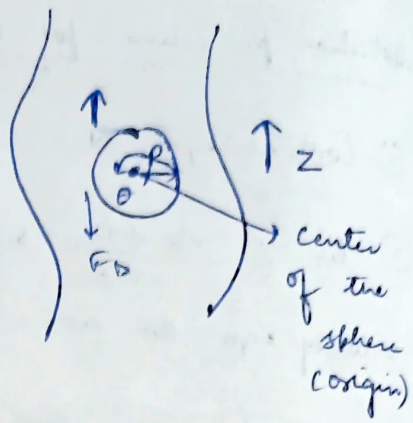 R
θ
F_D
Z
center
of the
sphere
(origin)